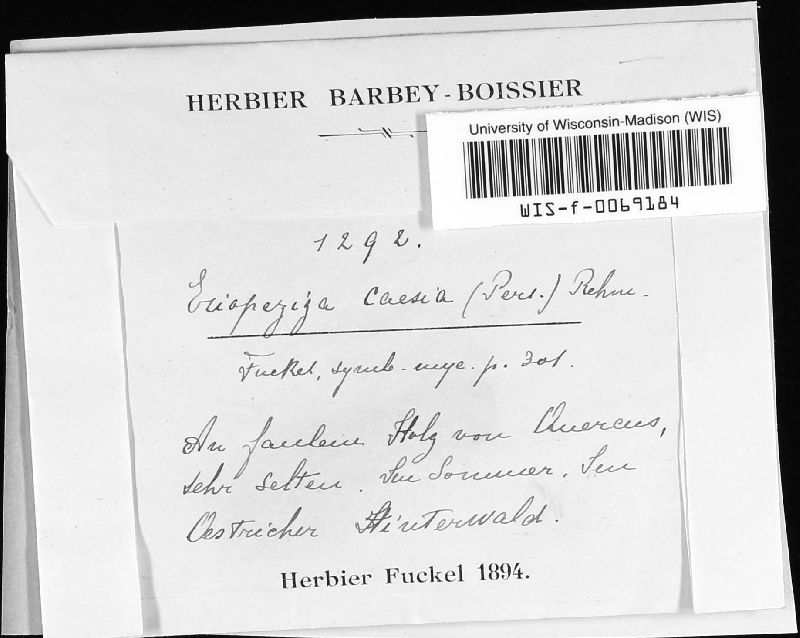 HERBIER BARBEY-BOISSIER
University of Wisconsin-Madison (WIS)
WIS-f-0069184
1292.
Eriopeziza caesia (Pers.) Rehm.
Fuckel, symb. myc. p. 301.
An faulem Holz von Quercus,
sehr selten. Im Sommer. Im
Oestricher Hinterwald.
Herbier Fuckel 1894.